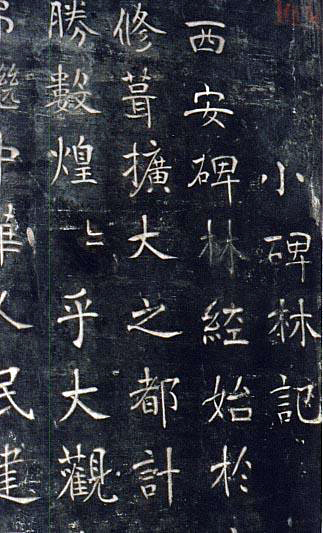 小碑林記
西安碑林經始於
修葺擴大之都計
勝數煌〻乎大觀
中華人民建